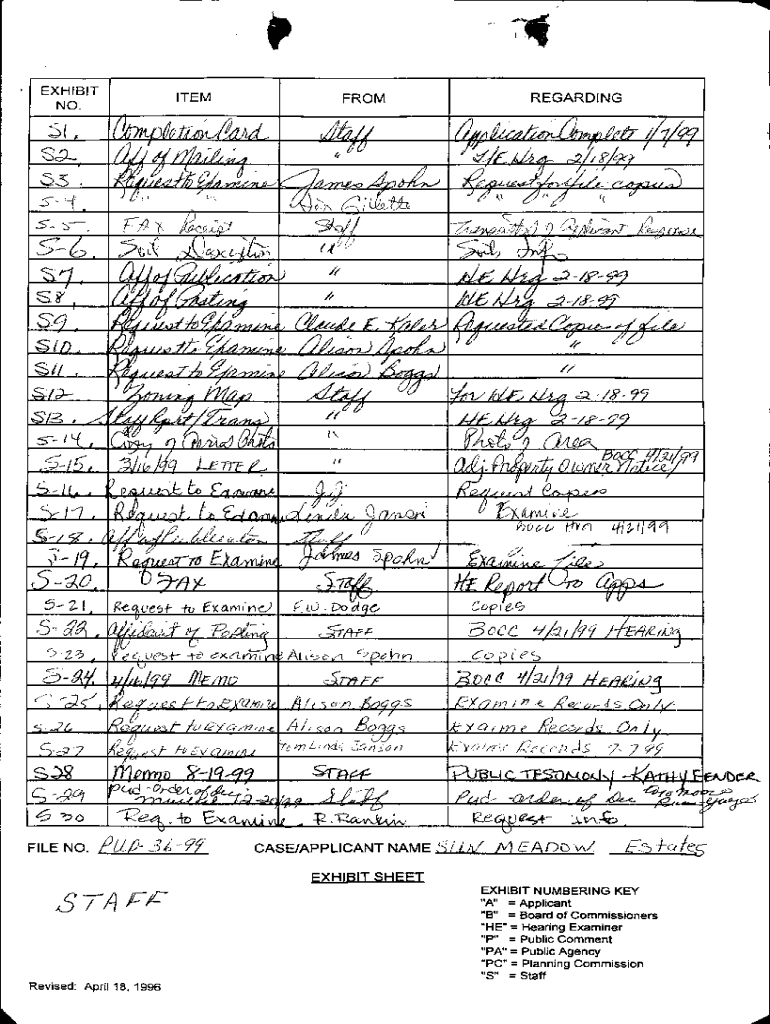 EXHIBIT NO. ITEM FROM REGARDING
S1. Completion Card Staff Application Complete 1/7/99
S2. Aff of Mailing " H/E Hrg 2/18/99
S3. Request to Examine James Spohn Request for file copies
S-4. " " Jim Gillette " "
S-5. FAX Receipt Staff Transmittal of Applicant Response
S-6. Soil Description " Soils Info.
S7. Aff of Publication " HE Hrg 2-18-99
S8. Aff of Posting " HE Hrg 2-18-99
S9. Request to Examine Claude E. Requested Copies of file
S10. Request to Examine Alison Spohn "
S11. Request to Examine Alison Boggs "
S12 Zoning Map Staff for HE Hrg 2-18-99
S13. Staff Rpt/Trans " HE Hrg 2-18-99
S-14. Copy of Aerial Photo " Photo of Area
S-15. 3/16/99 LETTER " Adj. Property Owner Notice BOCC 4/21/99
S-16. Request to Examine Request Copies
S-17. Request to Examine Linda Jansen Examine
S-18. Aff of Publication Staff BOCC HRG 4/21/99
S-19. Request to Examine James Spohn Examine file
S-20. FAX STAFF HE Report to Apps
S-21. Request to Examine F.W. Dodge Copies
S-22. Affidavit of Posting STAFF BOCC 4/21/99 HEARING
S-23. Request to examine Alison Spohn Copies
S-24 4/16/99 MEMO STAFF BOCC 4/21/99 HEARING
S-25. Request to Examine Alison Boggs Examine Records Only
S-26 Request to Examine Alison Boggs Exaime Records Only
S-27 Request to Examine Tom Linda Janson Examine Records 7-7-99
S28 Memo 8-19-99 STAFF PUBLIC TESTIMONY - KATHY FENDER
S-29 Pud-order of Dec Staff Pud-order of Dec
S30 Req. to Examine R. Rankin Request info.
FILE NO. PUD-36-99 CASE/APPLICANT NAME SUN MEADOW Estates
EXHIBIT SHEET
STAFF
EXHIBIT NUMBERING KEY
"A" = Applicant
"B" = Board of Commissioners
"HE" = Hearing Examiner
"P" = Public Comment
"PA" = Public Agency
"PC" = Planning Commission
"S" = Staff
Revised: April 18, 1996